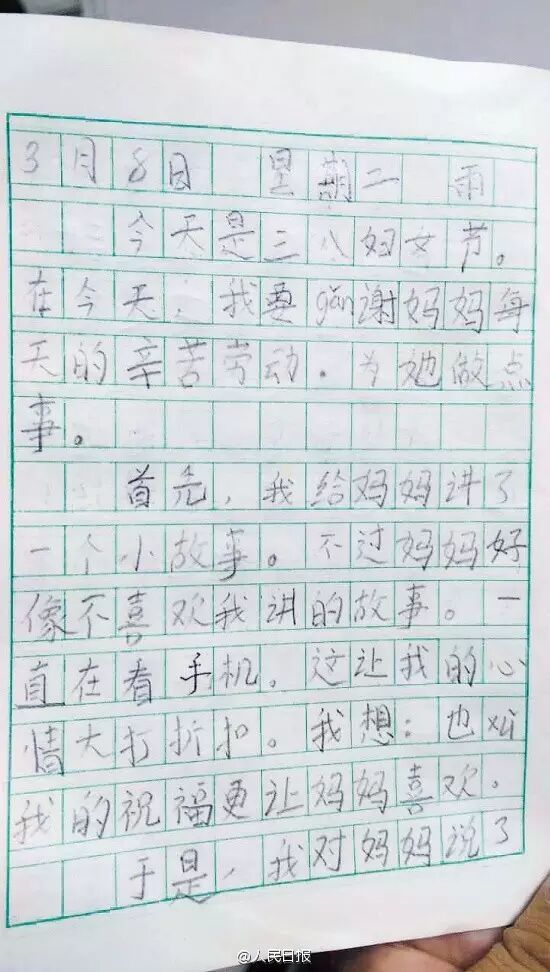 3月8日 星期二 雨
今天是三八妇女节。
在今天,我要gǎn谢妈妈每
天的辛苦劳动.为她做点
事。
首先,我给妈妈讲了
一个小故事。不过妈妈好
像不喜欢我讲的故事。一
直在看手机。这让我的心
情大打折扣。我想:也xǔ
我的祝福更让妈妈喜欢。
于是,我对妈妈说了
@人民日报